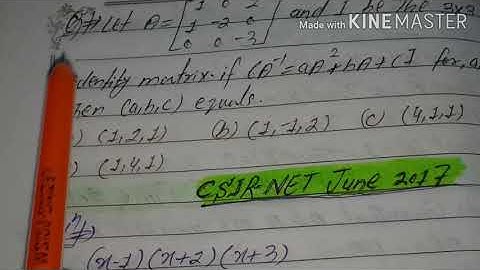 Made with KINEMASTER
Let A = [1 0 2 and I be the 3x3
1 -2 0
0 0 -3]
identity matrix. if 6A⁻¹ = aA² + bA + cI for, a,
then (a,b,c) equals.
) (1,2,1) (b) (1,-1,2) (c) (4,1,1)
) (1,4,1)
CSIR-NET June 2017
(x-1)(x+2)(x+3)